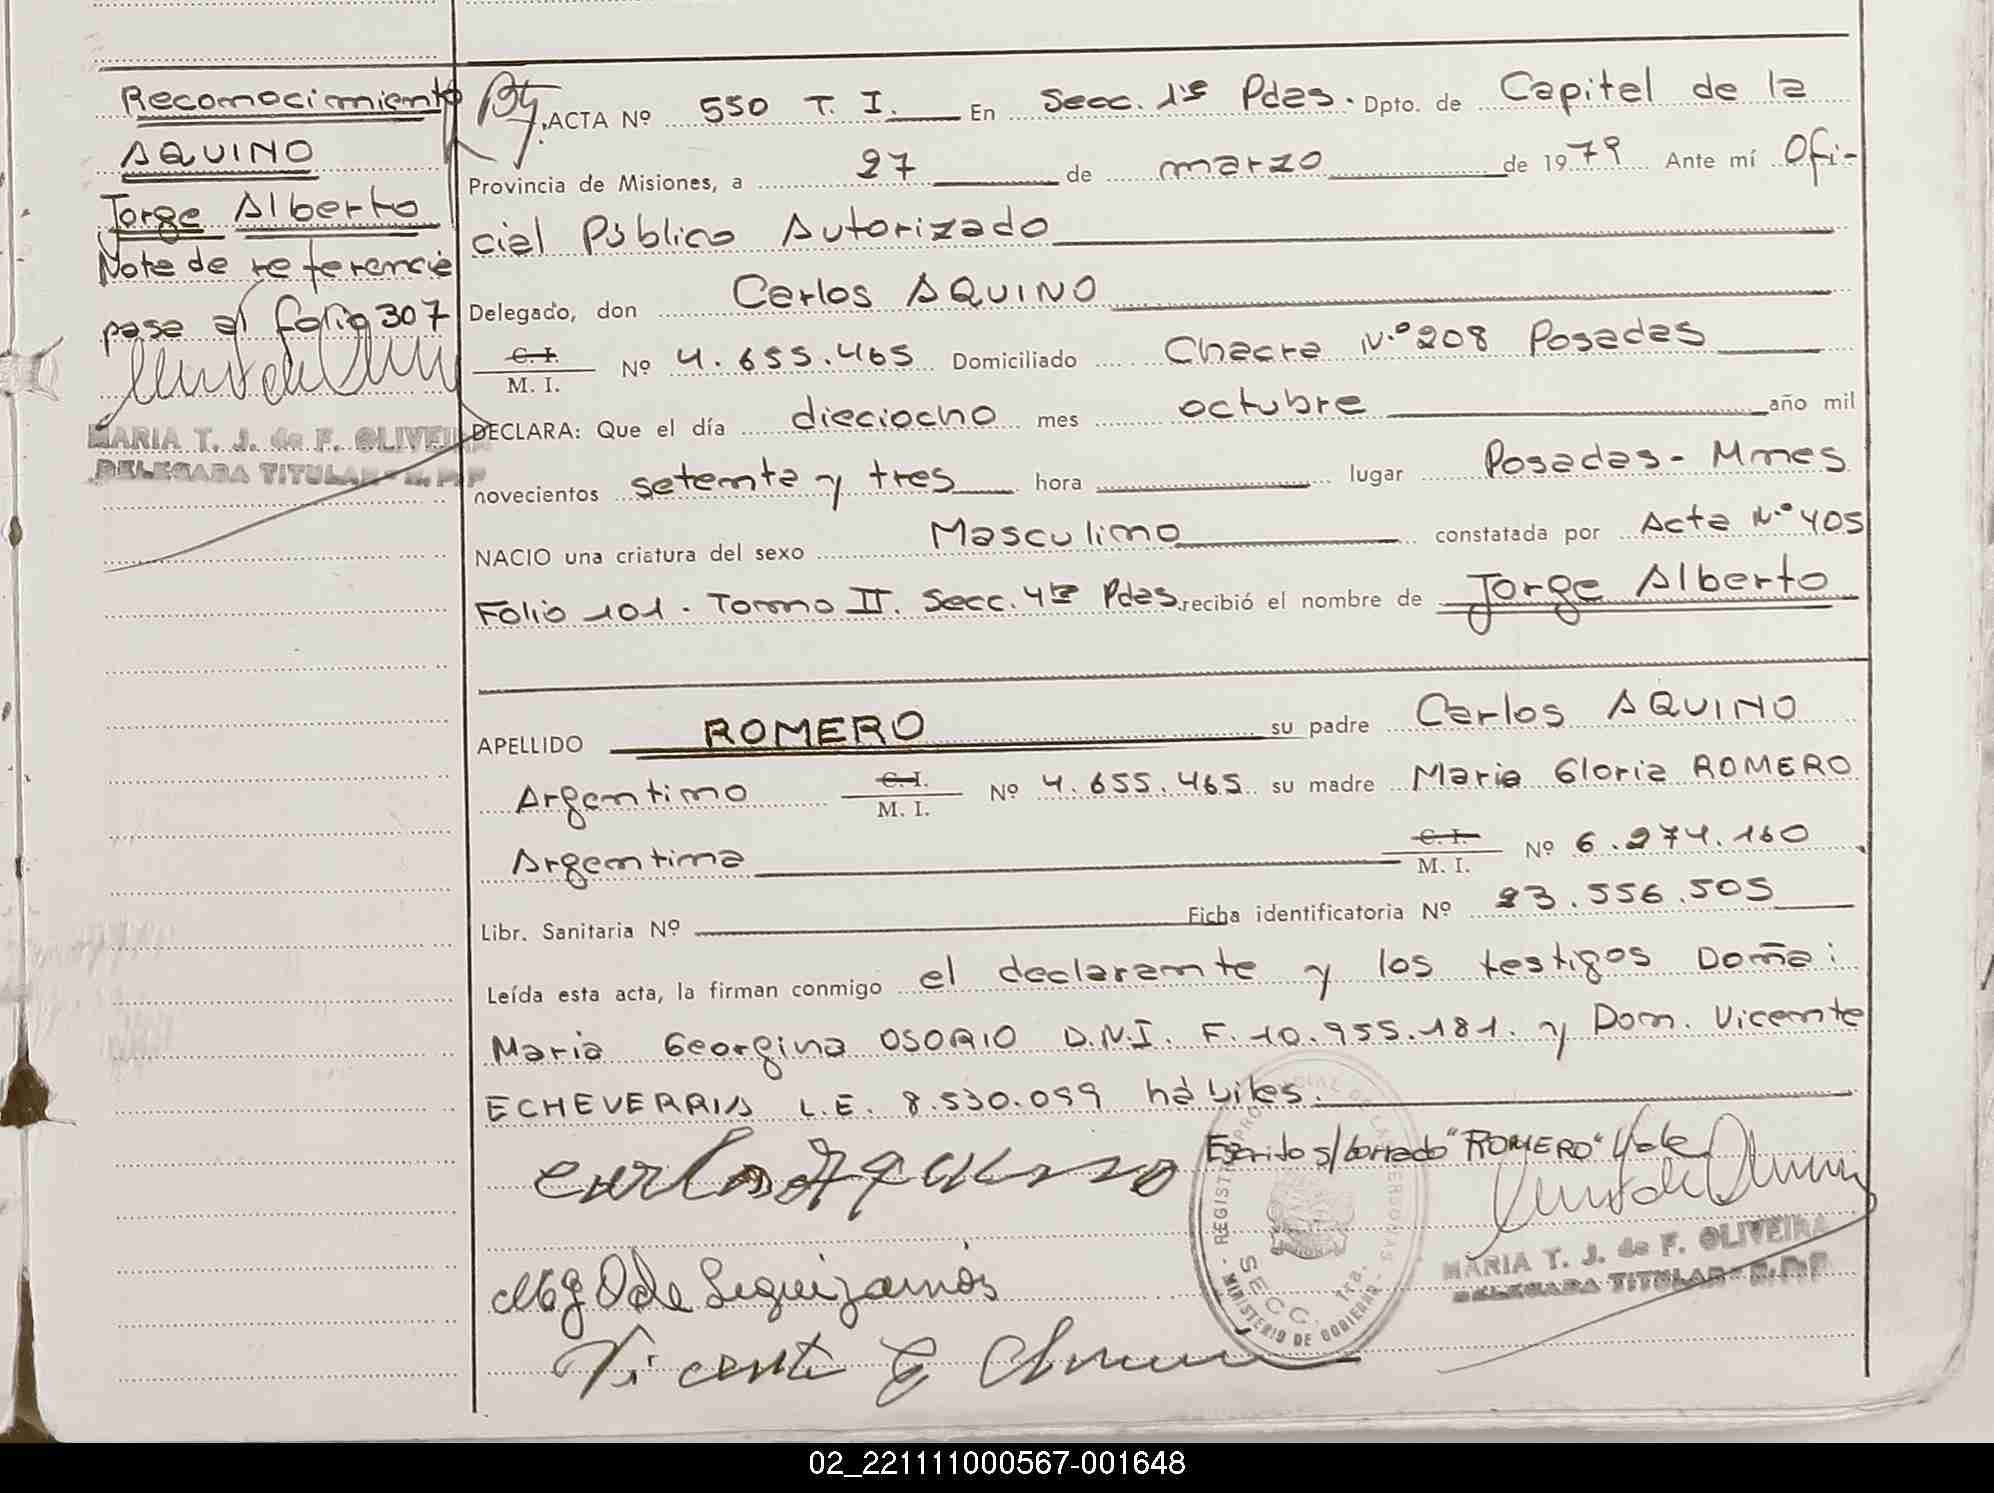 Reconocimiento
AQUINO
Jorge Alberto
Nota de referencia
pasa al folio 307
MARIA T. J. de F. OLIVEIRA
DELEGADA TITULAR R.P.P
ACTA Nº 550 T. I. En Secc. 1ª Pdas. Dpto. de Capital de la
Provincia de Misiones, a 27 de marzo de 1979 Ante mí Ofi-
cial Público Autorizado
Delegado, don Carlos AQUINO
C. I. / M. I. Nº 4.655.465 Domiciliado Chacra N.º 208 Posadas
DECLARA: Que el día dieciocho mes octubre año mil
novecientos setenta y tres hora lugar Posadas - Mnes
NACIO una criatura del sexo Masculino constatada por Acta N.º 405
Folio 101. Tomo II. Secc. 4ta Pdas. recibió el nombre de Jorge Alberto
APELLIDO ROMERO su padre Carlos AQUINO
Argentino C. I. / M. I. Nº 4.655.465 su madre Maria Gloria ROMERO
Argentina C. I. / M. I. Nº 6.274.160
Libr. Sanitaria Nº Ficha identificatoria Nº 23.556.505
Leída esta acta, la firman conmigo el declarante y los testigos Doña:
Maria Georgina OSORIO D.N.I. F. 10.955.181. y Don. Vicente
ECHEVERRIA L.E. 8.530.059 hábiles.
Escrito s/borrado "ROMERO" Vale
carlos aquino
REGISTRO PROVINCIAL DE LAS PERSONAS
SECC. 1ra.
MINISTERIO DE GOBIERNO
MARIA T. J. de F. OLIVEIRA
DELEGADA TITULAR R.P.P
Vicente E
02_221111000567-001648